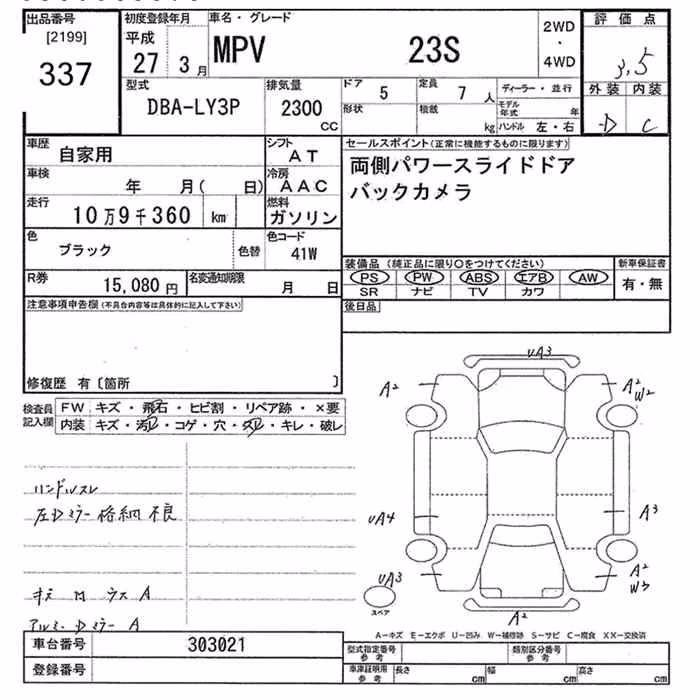 出品番号
[2199]
337
初度登録年月
平成
27 3月
車名・グレード
MPV 23S
2WD
・
4WD
評価点
3.5
外装 内装
D C
型式
DBA-LY3P
排気量
2300
cc
ドア 5
定員 7人
形状
積載 kg
ディーラー・並行
モデル年式 年
ハンドル 左・右
車歴
自家用
シフト
AT
車検
年 月( 日)
冷房
AAC
走行
10万9千360 km
燃料
ガソリン
色
ブラック
色替
色コード
41W
R券
15,080円
名変通知期限
月 日
セールスポイント(正常に機能するものに限ります)
両側パワースライドドア
バックカメラ
装備品(純正品に限り○をつけてください)
PS PW ABS エアB AW
SR ナビ TV カワ
新車保証書
有・無
後日品
注意事項申告欄(不具合内容等は具体的に記入して下さい)
修復歴 有〔箇所 〕
検査員
記入欄
FW キズ・飛石・ヒビ割・リペア跡・×要
内装 キズ・汚レ・コゲ・穴・スレ・キレ・破レ
ハンドルスレ
左Dミラー格納不良
アルミ・Dミラー A
UA3
A2
A2
W2
UA4
A3
UA3
スペア
A2
W3
A2
A-キズ E-エクボ U-凹み W-補修跡 S-サビ C-腐食 XX-交換済
車台番号
303021
登録番号
型式指定番号
参考
類別区分番号
参考
車庫証明用
参考
長さ cm
幅 cm
高さ cm